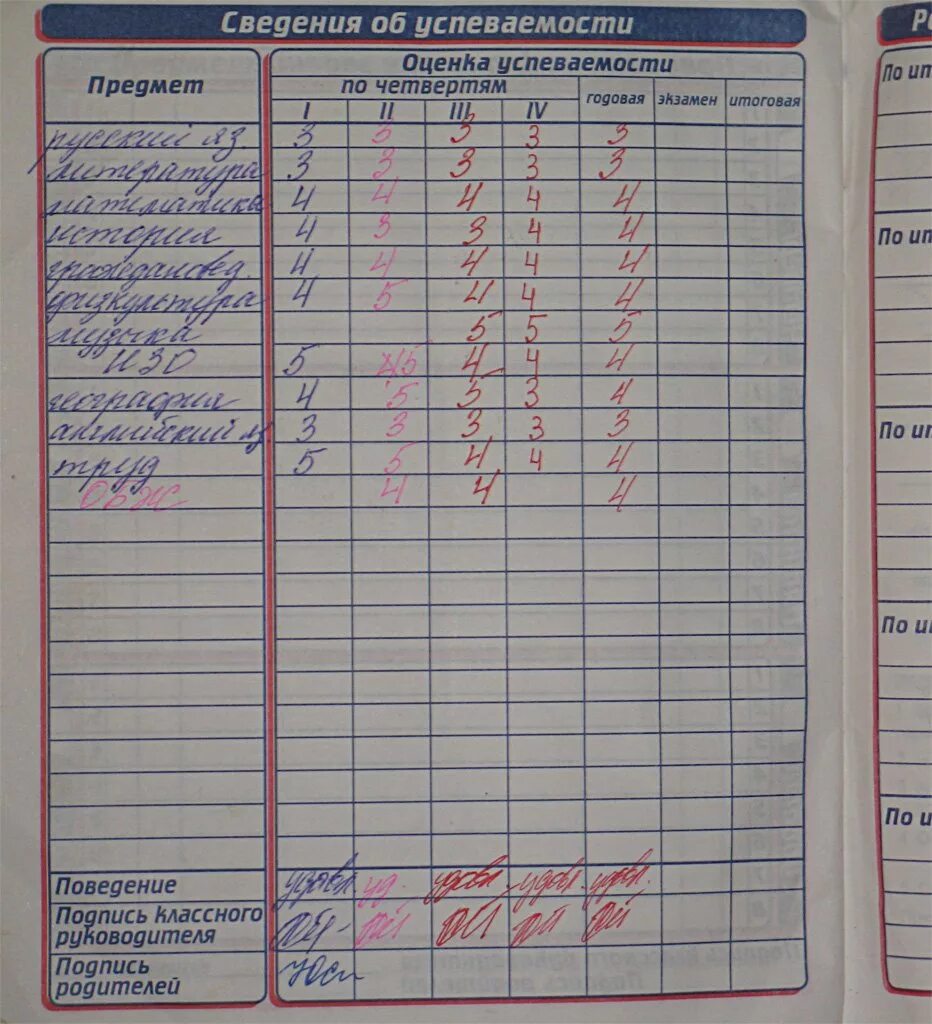 Сведения об успеваемости
Предмет
Оценка успеваемости
по четвертям
годовая экзамен итоговая
I II III IV
русский яз. 3 3 3 3 3
литература 3 3 3 3 3
математика 4 4 4 4 4
история 4 3 3 4 4
граждановед. 4 4 4 4 4
физкультура 4 5 4 4 4
музыка 5 5 5
ИЗО 5 45 4 4 4
география 4 5 5 3 4
английский яз 3 3 3 3 3
труд 5 5 4 4 4
ОБЖ 4 4 4
Поведение удовл. уд. удовл удовл. удовл.
Подпись классного
руководителя
Подпись
родителей
По ит
По ит
По ит
По и
По и